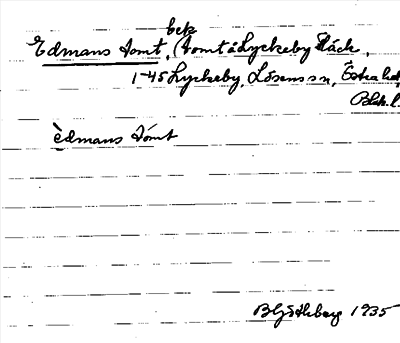 bek
Edmans tomt, (tomt å Lyckeby Bäck,
1-45 Lyckeby, Lösens sn, Östra hd,
Blek. l.
èdmans tómt
B Göthberg 1935